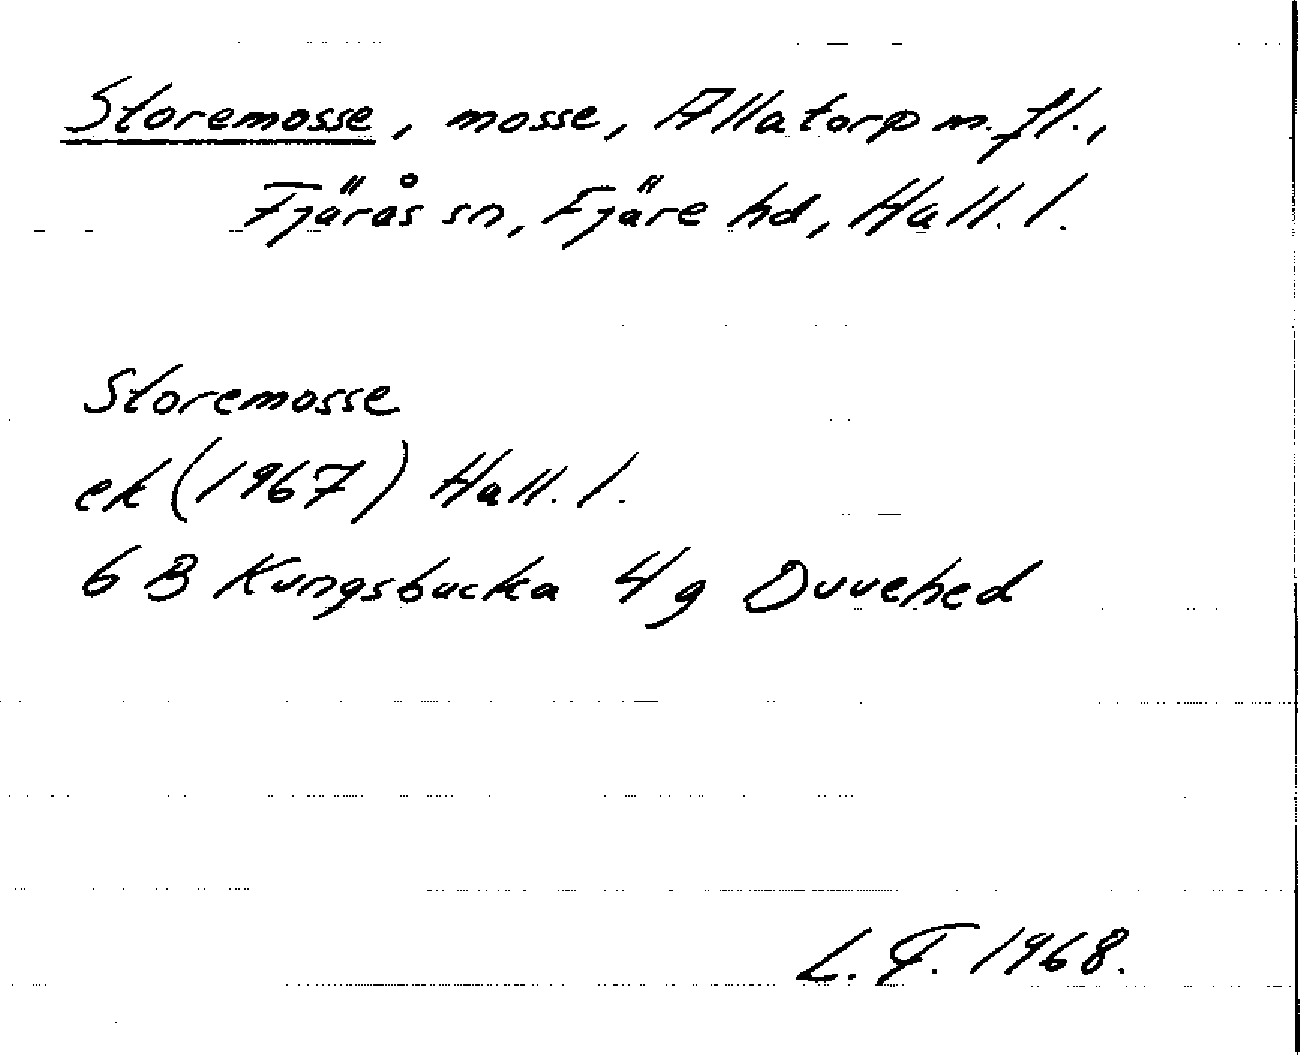 Storemosse, mosse, Allatorp m.fl.,
Fjärås sn, Fjäre hd, Hall. l.
Storemosse
ek (1967) Hall. l.
6 B Kungsbacka 4 g Duvehed
L. F. 1968.